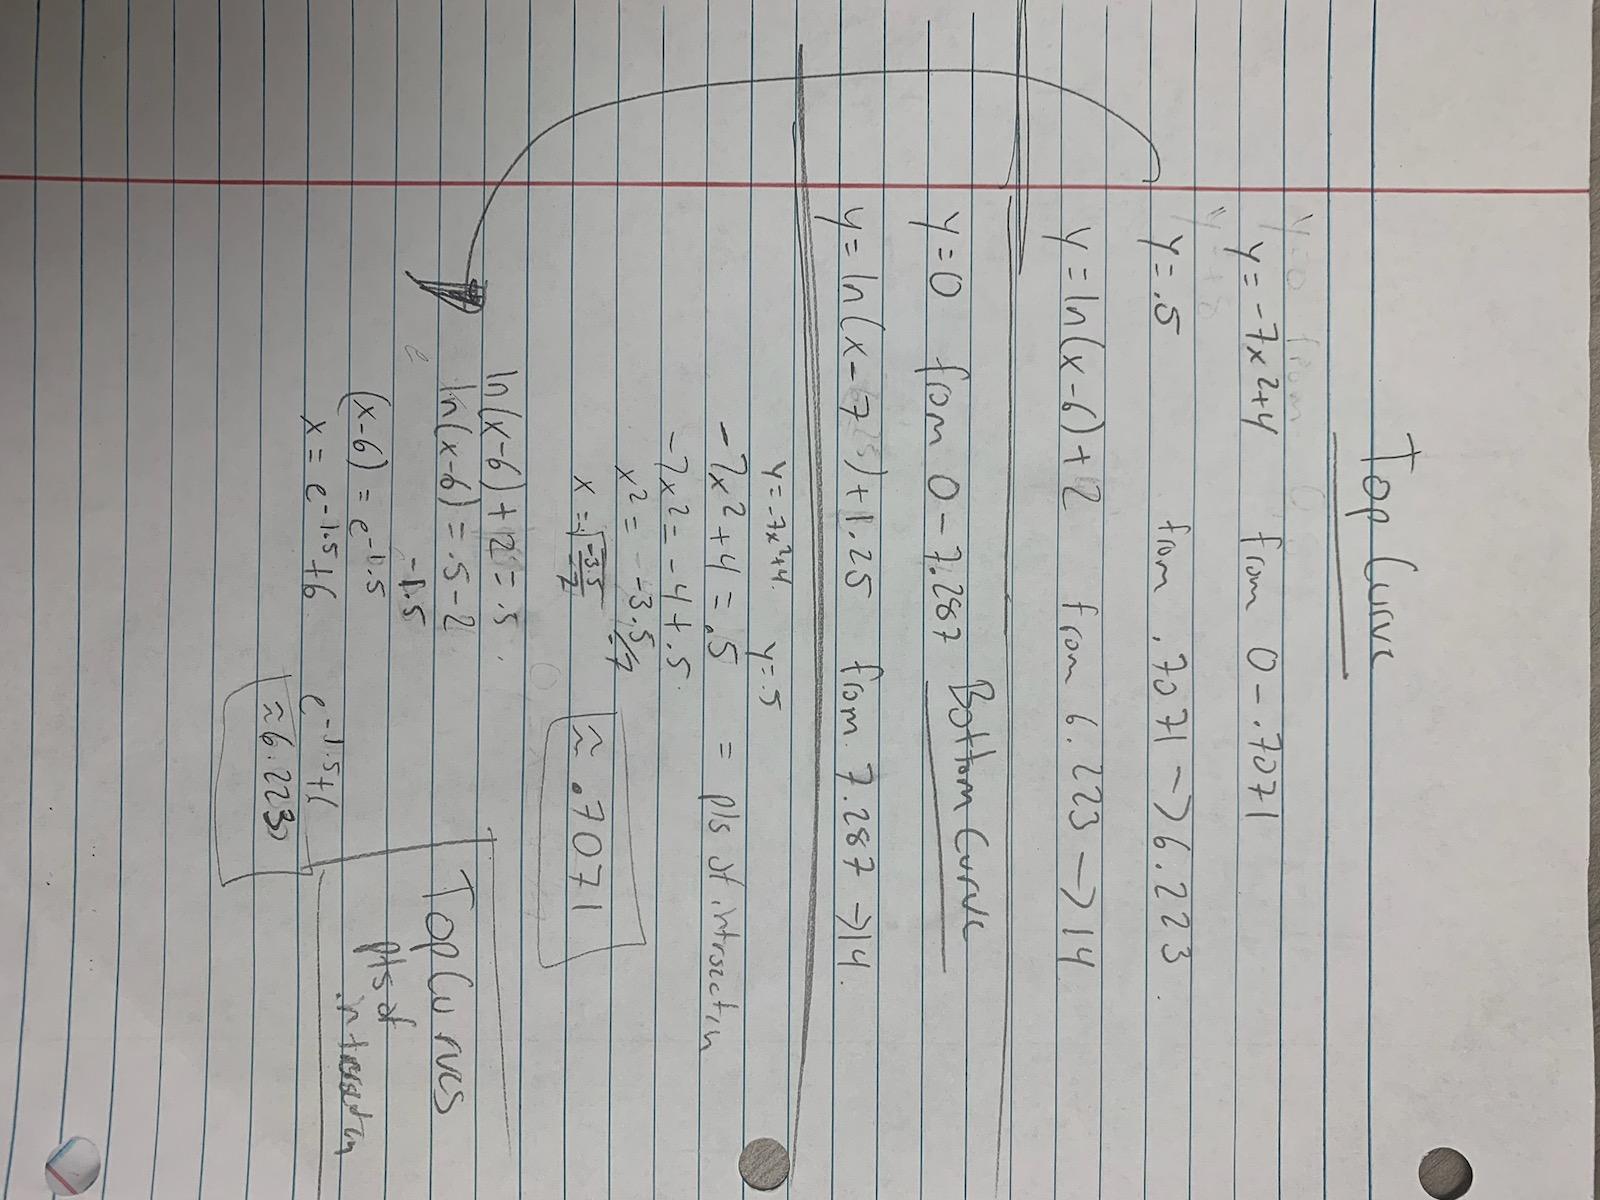 Top Curve
y=0 from 0
y = -7x²+4 from 0 - .7071
y = .5 from .7071 -> 6.223
y = ln(x-6)+2 from 6.223 -> 14
Bottom Curve
y=0 from 0 - 7.287
y= ln(x-7)+1.25 from 7.287 ->14.
y=-7x²+4. y=.5
-7x²+4 = .5 = pts of intrsectin
-7x² = -4+.5
x² = -3.5/-7
x = √(-3.5/-7) ≈ .7071
ln(x-6)+2=.5
ln(x-6) = .5-2
-1.5
(x-6) = e^-1.5
x = e^-1.5+6 e^-1.5+6
≈6.223
Top Curves
pts of
intersectin